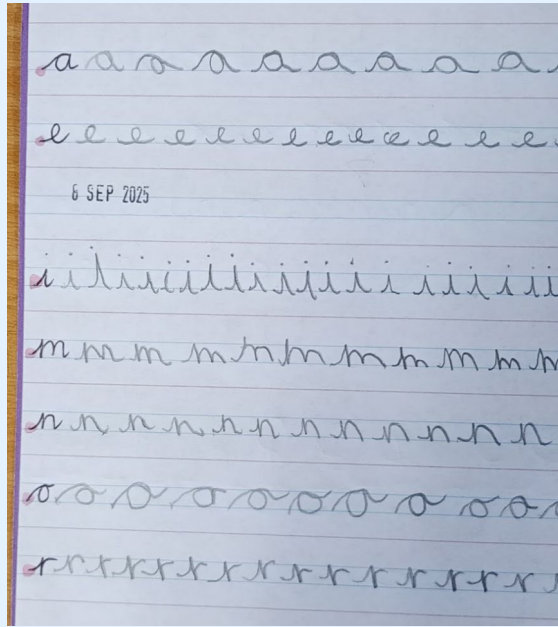 a a a a a a a a a
e e e e e e e e e e e e e
6 SEP 2025
i i i i i i i i i i i i i i i i i i i i
m m m m m m m m m m m
n n n n n n n n n n n n
o o o o o o o o o o
r r r r r r r r r r r r r r r